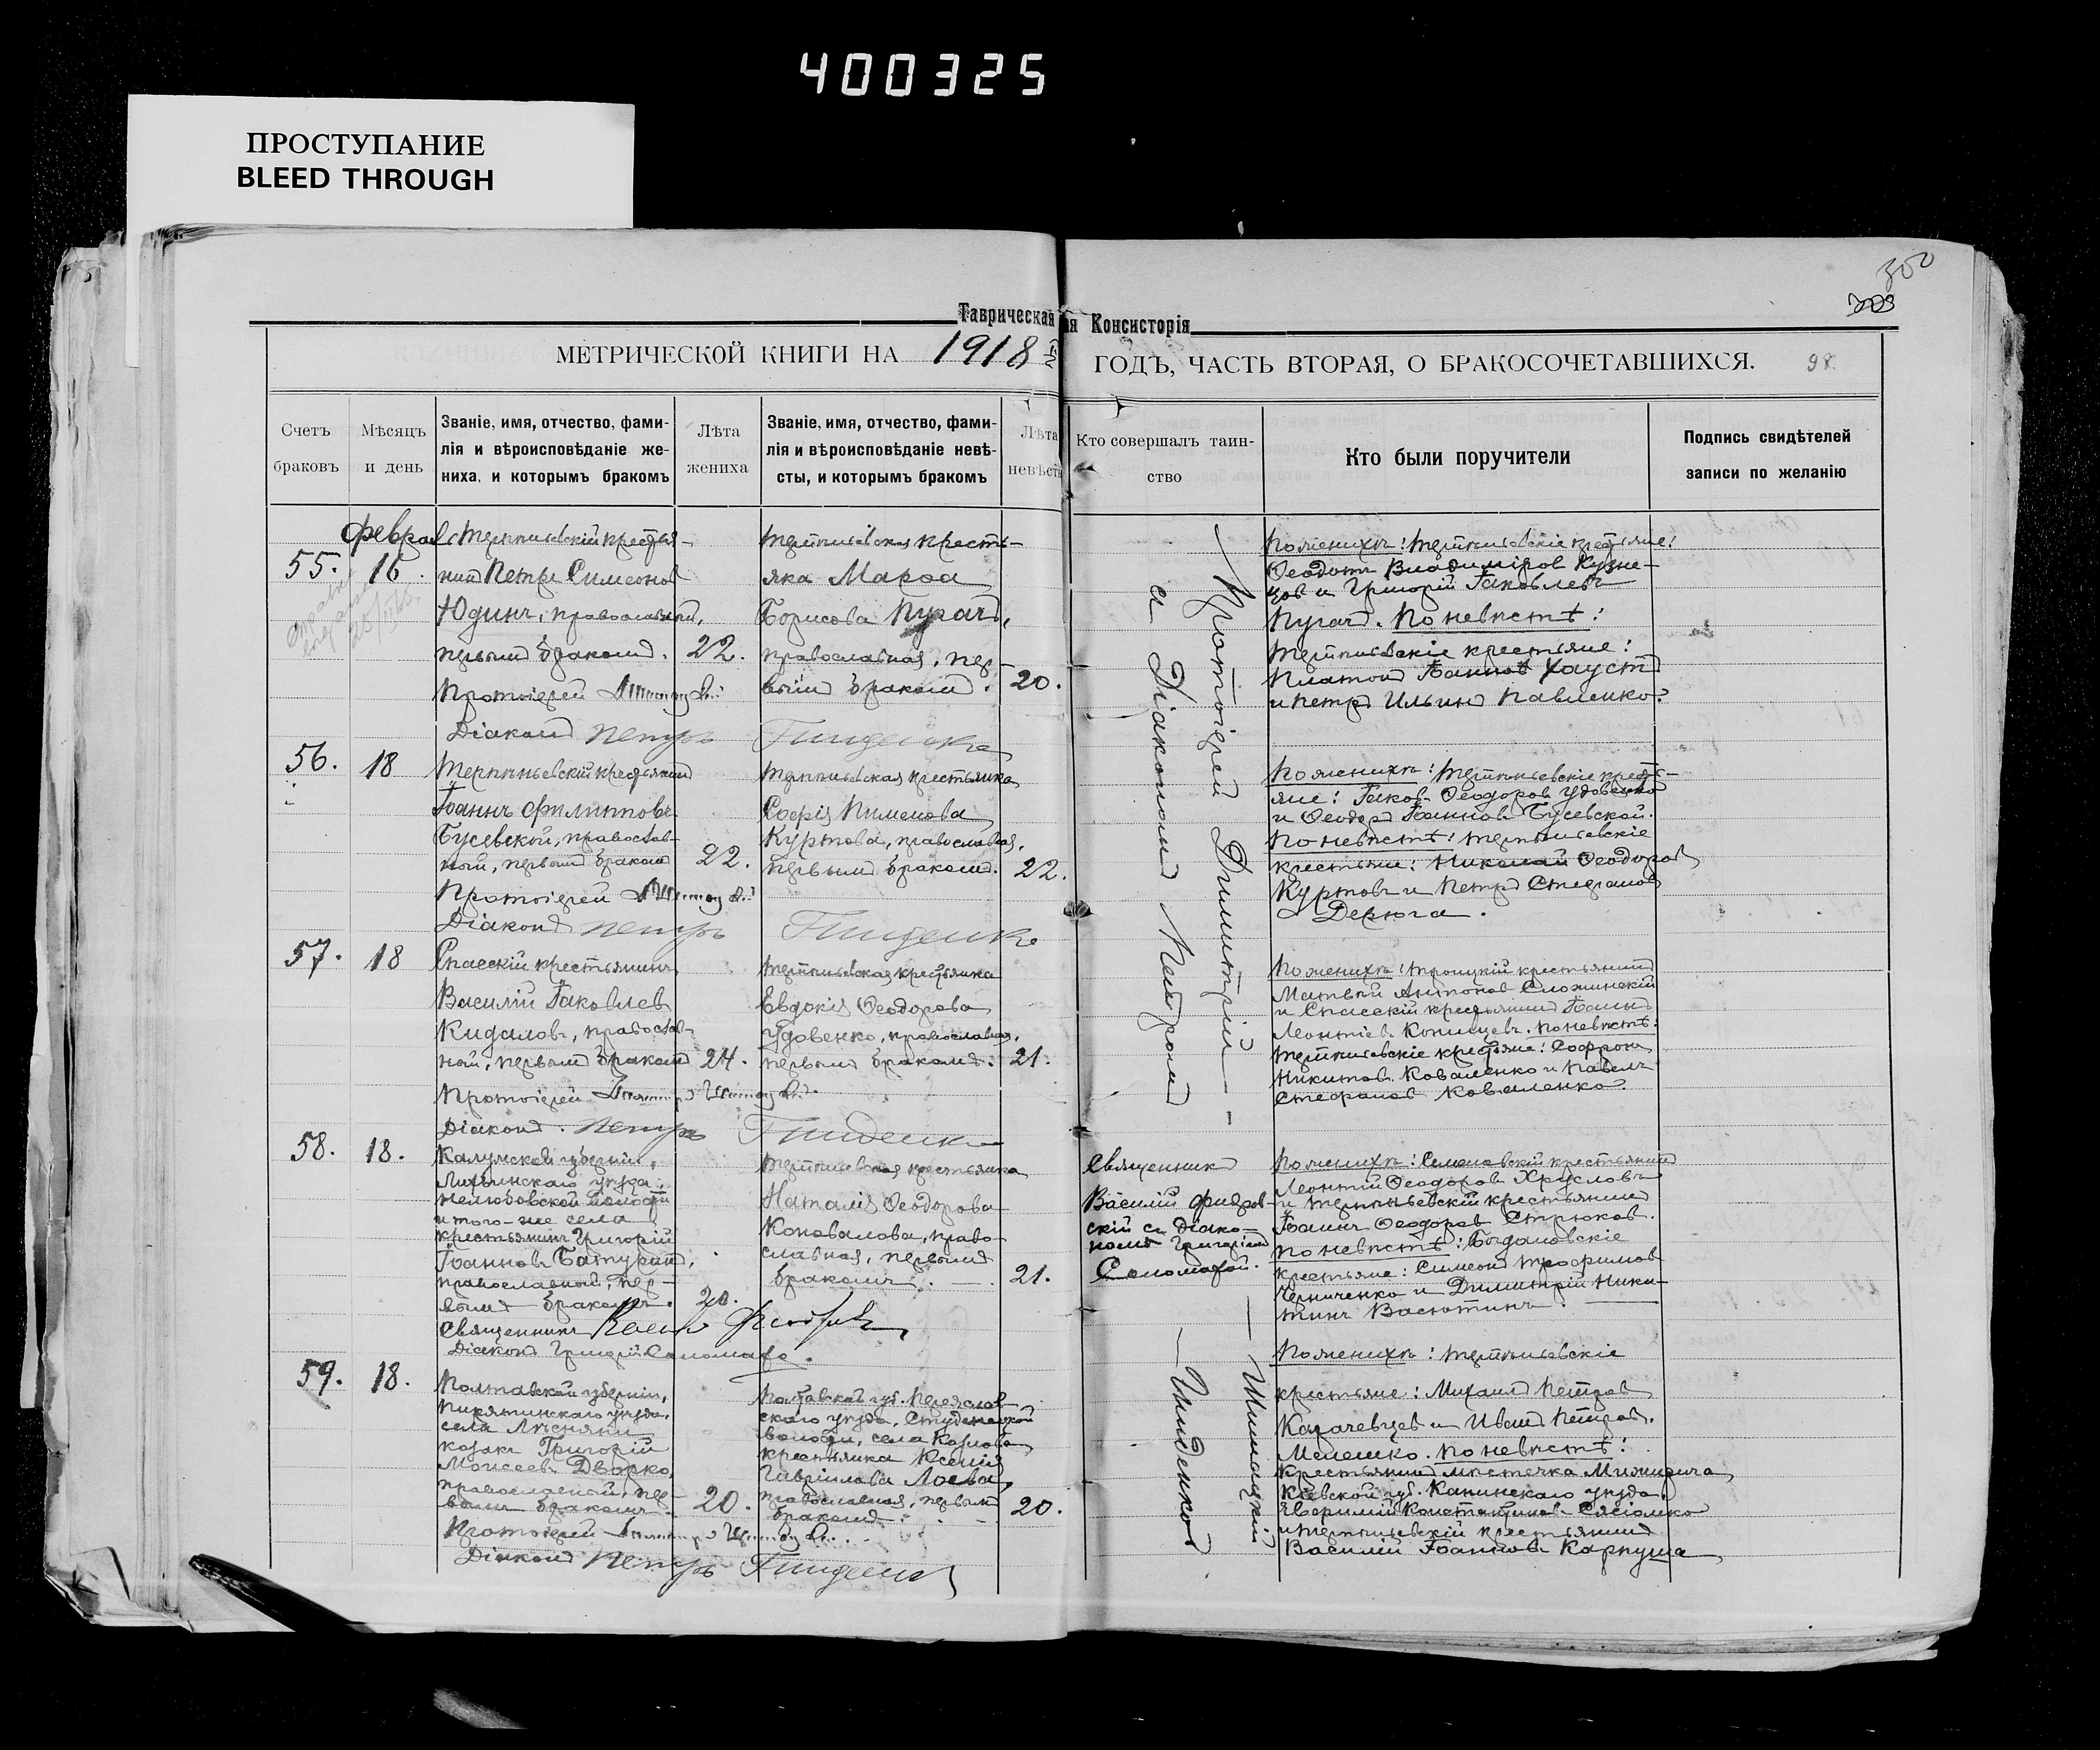 400325
ПРОСТУПАНИЕ
BLEED THROUGH
300
Таврическая Консисторія
МЕТРИЧЕСКОЙ КНИГИ НА 1918 ГОДЪ, ЧАСТЬ ВТОРАЯ, О БРАКОСОЧЕТАВШИХСЯ. 98.
Счетъ браковъ
Мѣсяцъ и день
Званіе, имя, отчество, фами-
лія и вѣроисповѣданіе же-
ниха, и которымъ бракомъ
Лѣта жениха
Званіе, имя, отчество, фами-
лія и вѣроисповѣданіе невѣ-
сты, и которымъ бракомъ
Лѣта невѣсты
Кто совершалъ таин-
ство
Кто были поручители
Подпись свидѣтелей
записи по желанію
55.
Феврал
16.
Терпѣньевскій крестья-
нинъ Петръ Симеоновъ
Юдинъ, православный,
первымъ бракомъ. 22.
Протоіерей
Діаконъ Петръ Гниденко
Терпѣньевская кресть-
янка Марѳа
Борисова Пугачъ,
православная, пер-
вымъ бракомъ. 20.
Протоіерей Димитрій
съ Діакономъ Петромъ
По женихѣ: Терпѣньевскіе крестьяне:
Ѳеодотъ Владиміровъ Кузне-
цов и Григорій Іаковлевъ
Пугачъ. По невѣстѣ:
Терпѣньевскіе крестьяне:
Платонъ Іоанновъ Хаустъ
и Петръ Ильинъ Павленко.
56.
18
Терпѣньевскій крестьянинъ
Іоаннъ Филипповъ
Бусевской, православ-
ный, первымъ бракомъ 22.
Протоіерей
Діаконъ Петръ Гниденко
Терпѣньевская крестьянка
Софія Пименова
Куртова, православная,
первымъ бракомъ. 22.
По женихѣ: Терпѣньевскіе кресть-
яне: Іаков Ѳеодоров Удовенко
и Ѳеодоръ Іоаннов Бусевской.
По невѣстѣ: Терпѣньевскіе
крестьяне: Николай Ѳеодоров
Куртовъ и Петръ Стефанов
Дерюга.
57.
18
Спасскій крестьянинъ
Василій Іаковлев
Кидаловъ, православ-
ный, первымъ бракомъ 24.
Протоіерей
Діаконъ. Петръ Гниденко
Терпѣньевская крестьянка
Евдокія Ѳеодорова
Удовенко, православная,
первымъ бракомъ. 21.
По женихѣ: Троицкій крестьянинъ
Матвѣй Антонов
и Спасскій крестьянинъ Іоаннъ
Леонтіев. По невѣстѣ:
Терпѣньевскіе крестьяне: Софронъ
Никитов. Коваленко и Павелъ
Стефанов Коваленко.
58.
18.
Калужской губерніи,
Лихвинскаго уѣзда,
волости
и того-же села
крестьянинъ Григорій
Іоаннов Батуринъ,
православный, пер-
вымъ бракомъ. 20.
Священникъ
Діаконъ Григорій
Терпѣньевская крестьянка
Наталія Ѳеодорова
Коновалова, право-
славная, первымъ
бракомъ. 21.
Священникъ
Василій
скій съ діако-
номъ Григоріемъ
По женихѣ: Семеновскій крестьянинъ
Леонтій Ѳеодоров Хрусловъ
и Терпѣньевскій крестьянинъ
Іоаннъ Ѳеодоров Стрюков.
По невѣстѣ: Богдановскіе
крестьяне: Симеонъ Трофимов
Черниченко и Димитрій Ники-
тинъ Васютинъ.
59.
18.
Полтавской губерніи,
Пирятинскаго уѣзда,
села Лѣсняки
козакъ Григорій
Моисеевъ Дворко,
православный, пер-
вымъ бракомъ. 20.
Протоіерей
Діаконъ Петръ Гниденко
Полтавской губ. Переяслав-
скаго уѣзда, Студеницкой
волости, села Козлова
крестьянка Ксенія
Гавріилова Лоева,
православная, первымъ
бракомъ. 20.
Гниденкой
По женихѣ: Терпѣньевскіе
крестьяне: Михаилъ Петров
Карачевцев и Иванъ Петров.
Мелешко. По невѣстѣ:
крестьянинъ мѣстечка
Кіевской губ. Каневскаго уѣзда.
Константинов
и Терпѣньевскій крестьянинъ
Василій Іоанновъ Карпуша